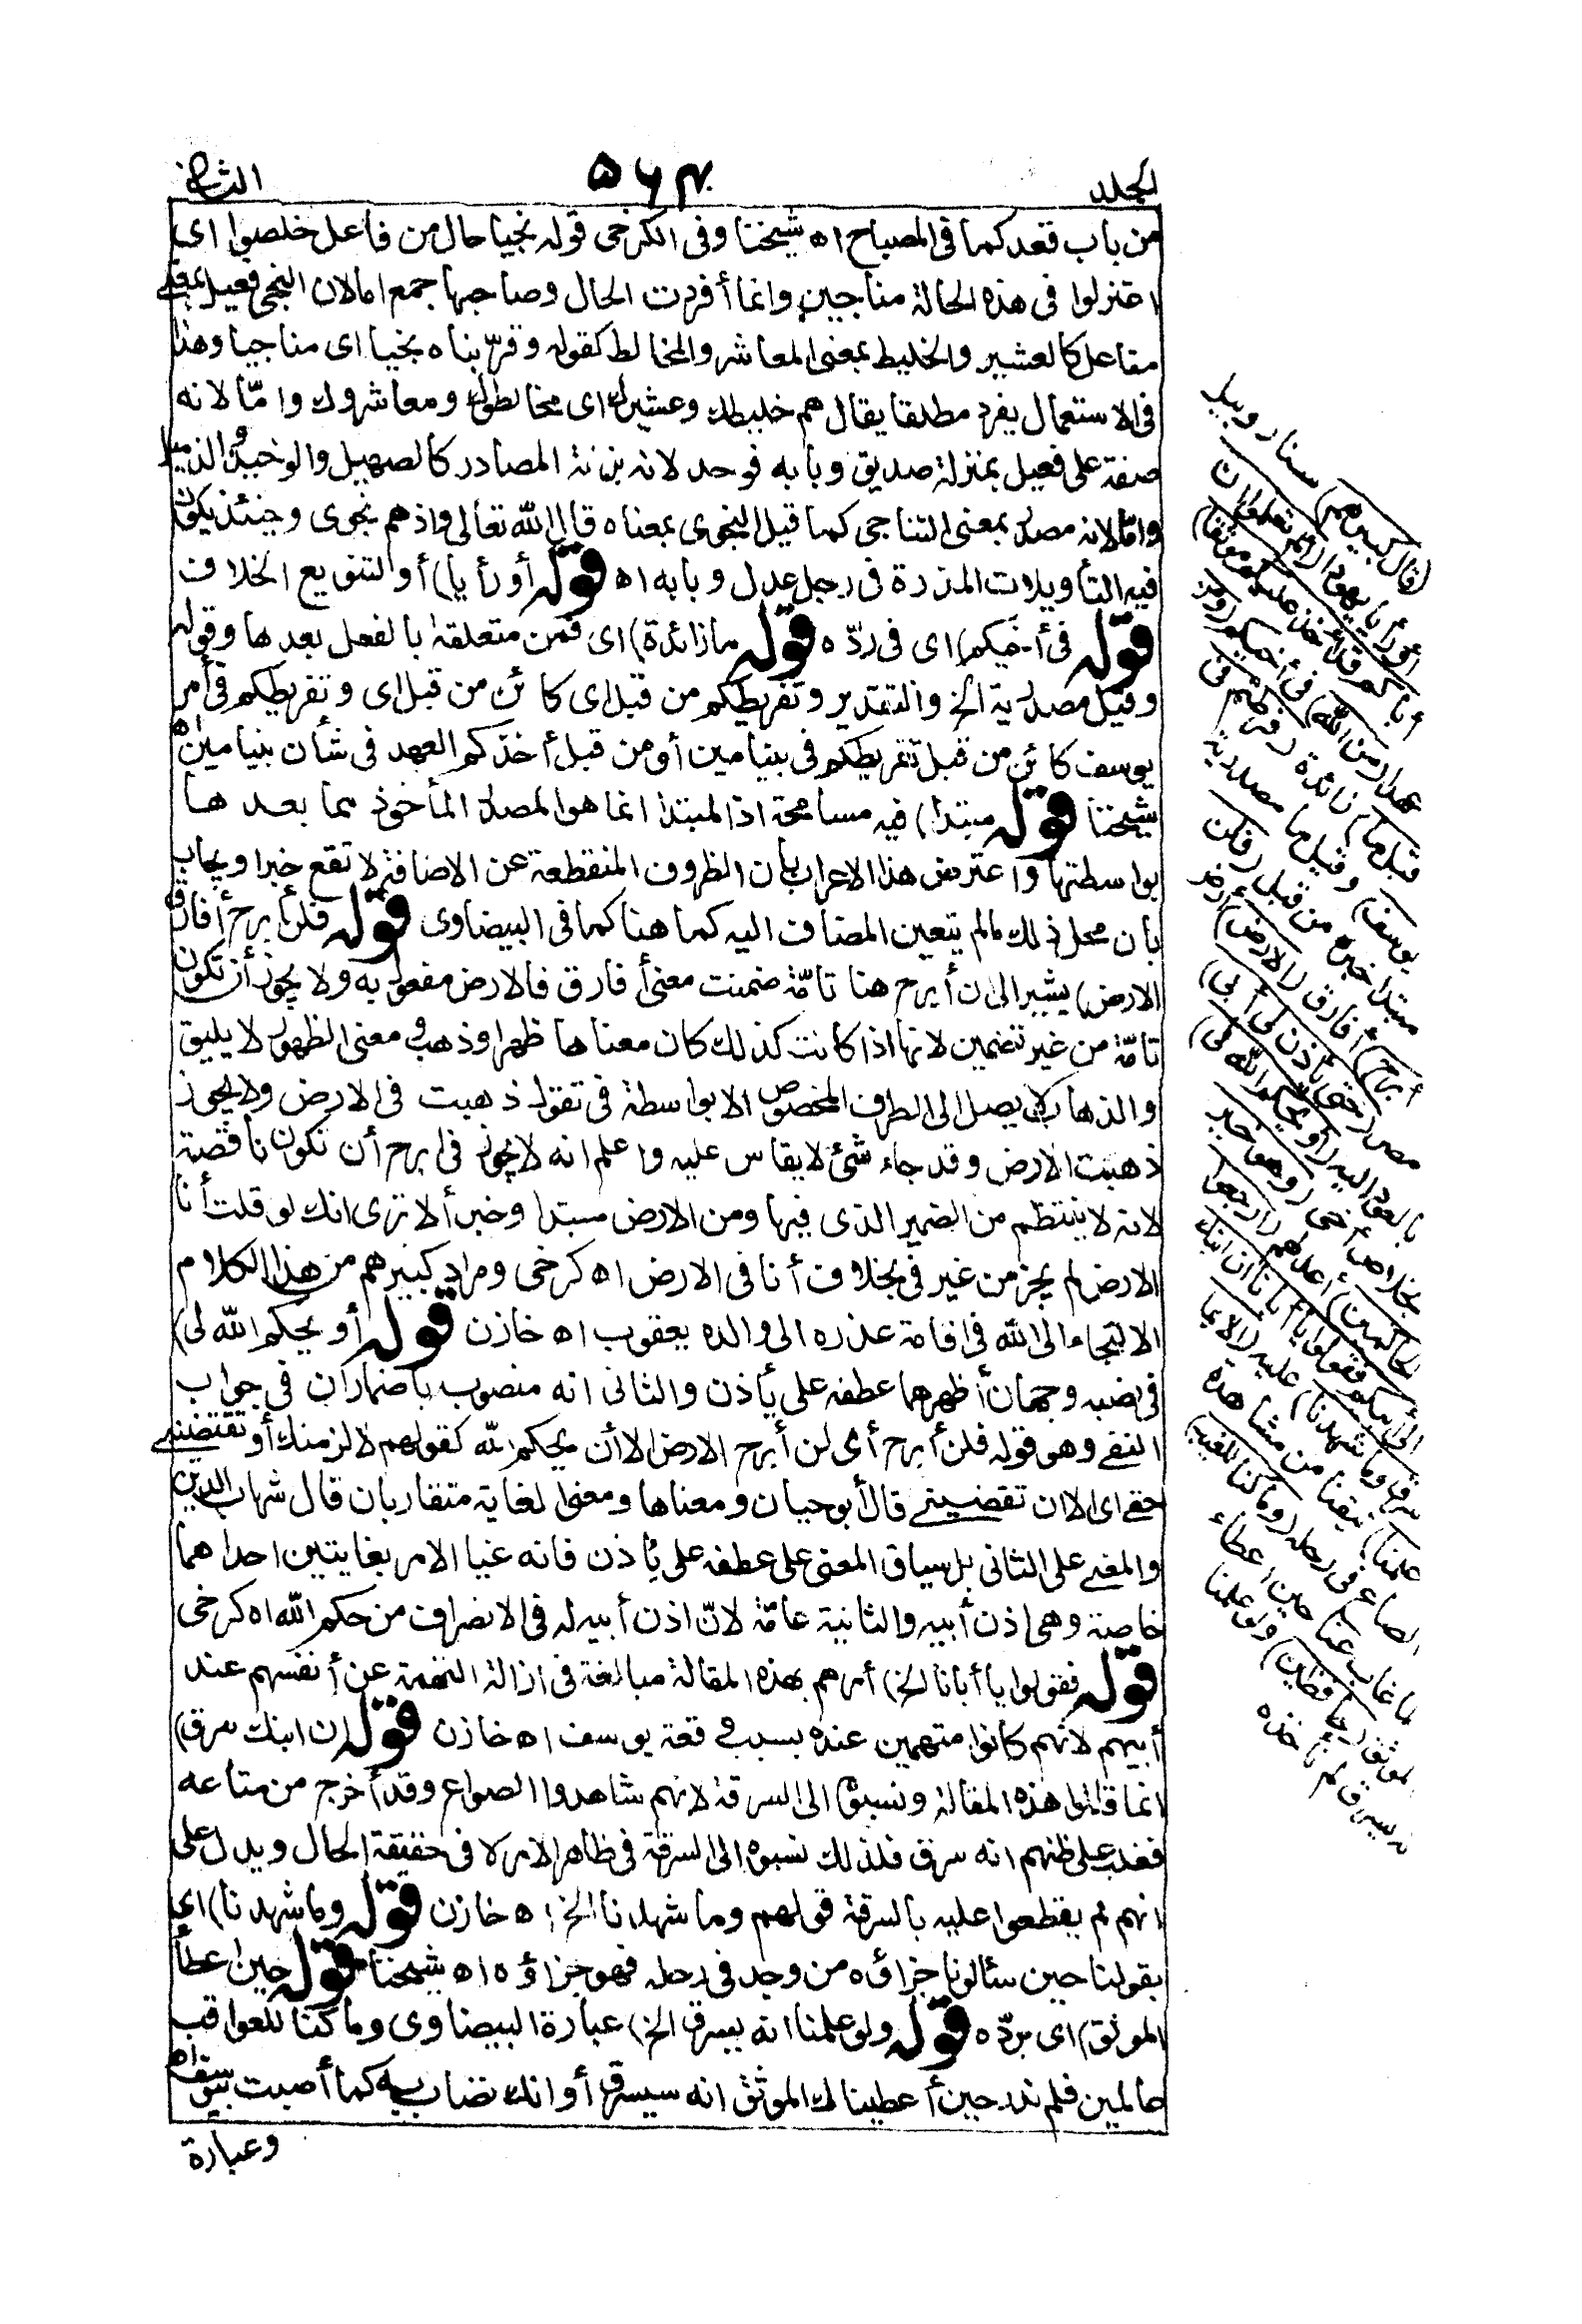 الجلد ٥٦٤ الثانی
من باب قعد كما فی المصباح اه شيخنا وفی الكرخی قوله نجيا حال من فاعل خلصوا ای
اعتزلوا فی هذه الحالة مناجين وانما أفردت الحال وصاحبها جمع اما لان النجی فعيل بمعنی
مفاعل كالعشير والخليط بمعنی المعاشر والمخالط كقوله وقربناه نجيا ای مناجيا وهذا
فی الاستعمال يفرد مطلقا يقال هم خليطك وعشيرك ای مخالطوك ومعاشروك وامّا لانه
صفة علی فعيل بمنزلة صديق وبابه فوحد لانه بزنة المصادر كالصهيل والوخيد والذميل
وامّا لانه مصدر بمعنی التناجی كما قيل النجوی بمعناه قال الله تعالی واذ هم نجوی وحينئذ يكون
فيه التأويلات المذكورة فی رجل عدل وبابه اه قوله أو رأيا) أو التنويع الخلاف
قوله فی أخيكم) ای فی ردّه قوله ما زائدة) ای فمن متعلقة بالفعل بعدها وقوله
وقيل مصدرية الخ والتقدير وتفريطكم من قبل ای كائن من قبل ای وتفريطكم فی أمر
يوسف كائن من قبل تفريطكم فی بنيامين أو من قبل أخذكم العهد فی شأن بنيامين اه
شيخنا قوله مبتدا) فيه مسامحة اذ المبتدا انما هو المصدر المأخوذ مما بعدها
بواسطتها واعترض هذا الاعراب بأن الظروف المنقطعة عن الاضافة لا تقع خبرا ويجاب
بأن محل ذلك مالم يتعين المضاف اليه كما هنا كما فی البيضاوی قوله فلن أبرح أفارق
الارض) يشير الی ن أبرح هنا تامّة ضمنت معنی أفارق فالارض مفعول به ولا يجوز أن تكون
تامّة من غير تضمين لانها اذا كانت كذلك كان معناها ظهر او ذهب ومعنی الظهور لا يليق
والذهاب لا يصل الی الظرف المخصوص الا بواسطة فی تقول ذهبت فی الارض ولا يجوز
ذهبت الارض وقد جاء شئ لا يقاس عليه واعلم انه لا يجوز فی ابرح أن تكون ناقصة
لانه لا ينتظم من الضمير الذی فيها ومن الارض مبتدا وخبر ألا تری انك لو قلت أنا
الارض لم يجز من غير فی بخلاف أنا فی الارض اه كرخی ومراد كبيرهم من هذا الكلام
الالتجاء الی الله فی اقامة عذره الی والده يعقوب اه خازن قوله أو يحكم الله لی)
فی نصبه وجهان أظهرهما عطفه علی يأذن والثانی انه منصوب باضمار ان فی جواب
النفی وهو قوله فلن أبرح أی لن أبرح الارض الا أن يحكم الله كقولهم لالزمنك أو تقتضينی
حقی ای الا ان تقضينی قال أبو حيان ومعناها ومعنی الغاية متقاربان قال شهاب الدين
والمعنی علی الثانی بل سياق المعنی علی عطفه علی يأذن فانه غيا الامر بغايتين احداهما
خاصة وهی اذن أبيه والثانية عامّة لانّ اذن أبيه له فی الانصراف من حكم الله اه كرخی
قوله فقولوا يا أبانا الخ) أمرهم بهذه المقالة مبالغة فی ازالة التهمة عن أنفسهم عند
أبيهم لانهم كانوا متهمين عنده بسبب قصة يوسف اه خازن قوله ان ابنك سرق)
انما قالوا هذه المقالة ونسبوه الی السرقة لانهم شاهدوا الصواع وقد أخرج من متاعه
فغلب علی ظنهم انه سرق فلذلك نسبوه الی السرقة فی ظاهر الامر لا فی حقيقة الحال ويدل علی
انهم لم يقطعوا عليه بالسرقة قولهم وما شهدنا الخ اه خازن قوله وما شهدنا) ای
بقولنا حين سألونا جزاؤه من وجد فی رحله فهو جزاؤه اه شيخنا قوله حين اعطاء
الموثق) ای بردّه قوله ولو علمنا انه يسرق الخ) عبارة البيضاوی وما كنا للعواقب
عالمين فلم ندر حين أعطيناك الموثق انه سيسرق أو انك تصاب به كما أصبت بيوسف اه
وعبارة
(قال كبيرهم) سنا روبيل
أو رأيا يهودا (ألم تعلموا أن
أباكم قد أخذ عليكم موثقا)
عهدا (من الله) فی أخيكم (ومن
قبل ما) زائدة (فرطتم فی
يوسف) وقيل ما مصدرية
مبتدا خبره من قبل (فلن
أبرح) أفارق (الارض) أرض
مصر (حتی يأذن لی أبی)
بالعود اليه (أو يحكم الله لی)
بخلاص أخی (وهو خير
الحاكمين) أعدلهم (ارجعوا
الی أبيكم فقولوا يا أبانا ان ابنك
سرق وما شهدنا) عليه (الا بما
علمنا) تيقنا من مشاهدة
الصاع فی رحله (وما كنا للغيب)
لما غاب عنا حين اعطاء
الموثق (حافظين) ولو علمنا
انه يسرق لم نأخذه